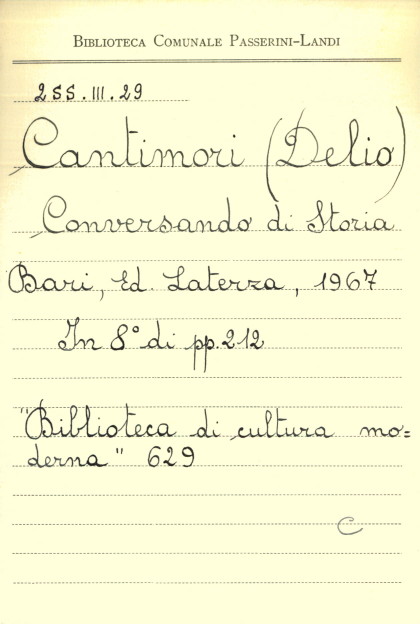 BIBLIOTECA COMUNALE PASSERINI-LANDI
255.III.29
Cantimori (Delio)
Conversando di Storia
Bari, Ed. Laterza, 1967
In 8° di pp. 212
"Biblioteca di cultura mo=
derna" 629
C